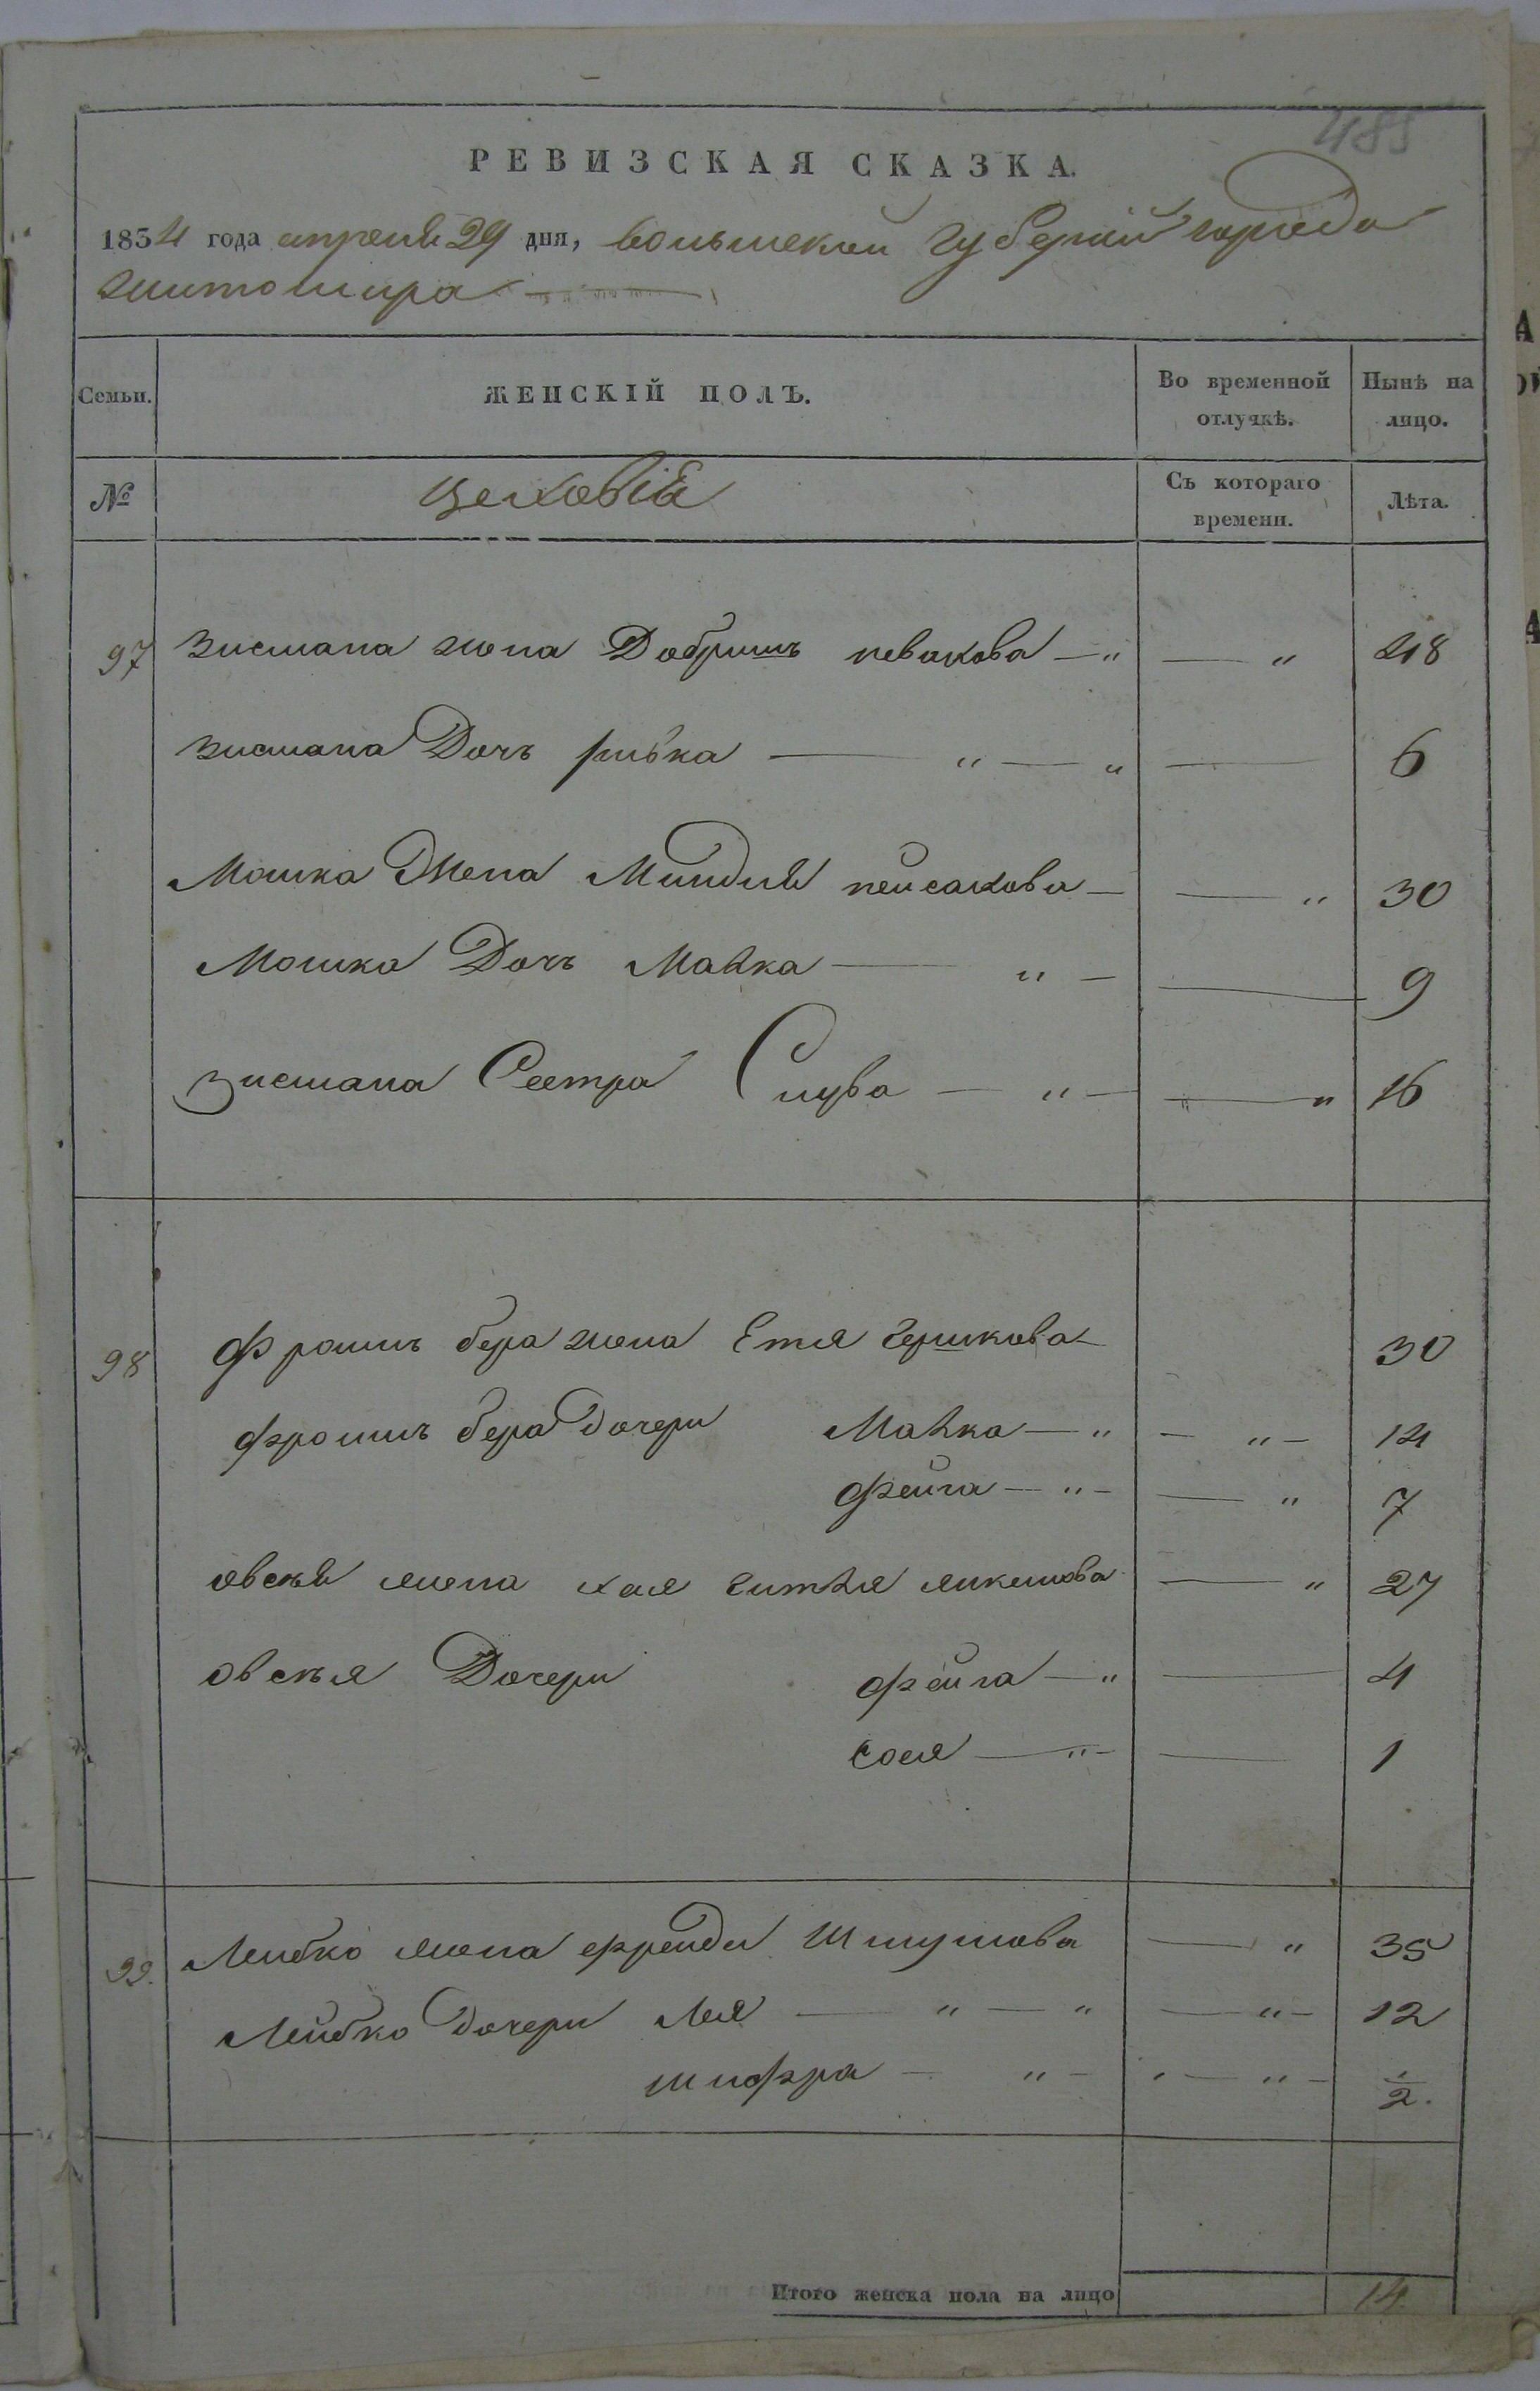 485
РЕВИЗСКАЯ СКАЗКА.
1854 года апреля 29 дня, волынской губерніи города
житомира
Семьи. ЖЕНСКІЙ ПОЛЪ. Во временной отлучкѣ. Нынѣ на лицо.
№ цеховіе Съ котораго времени. Лѣта.
97 зисмана жона Добришъ — " — " 48
зисмана Дочь ривка — " — " — 6
Мошка Жена Миндля пейсахова — — " 30
Мошка Дочь Малка — " — — 9
зисмана Сестра Слува — " — — " 16
98 Фроимъ бера жона Етя Гершкова 30
фроимъ бера дочери Малка — " — " — 14
фейга — " — — " 7
овсѣя жена хая ситля — " 27
овсѣя Дочери фейга — " — 4
сося — " — — 1
99. Лейбко жена фрейда Шмулова — " 35
Лейбко дочери Лея — " — " — " — 12
шифра — " — " — " — 1/2.
Итого женска пола на лицо 14